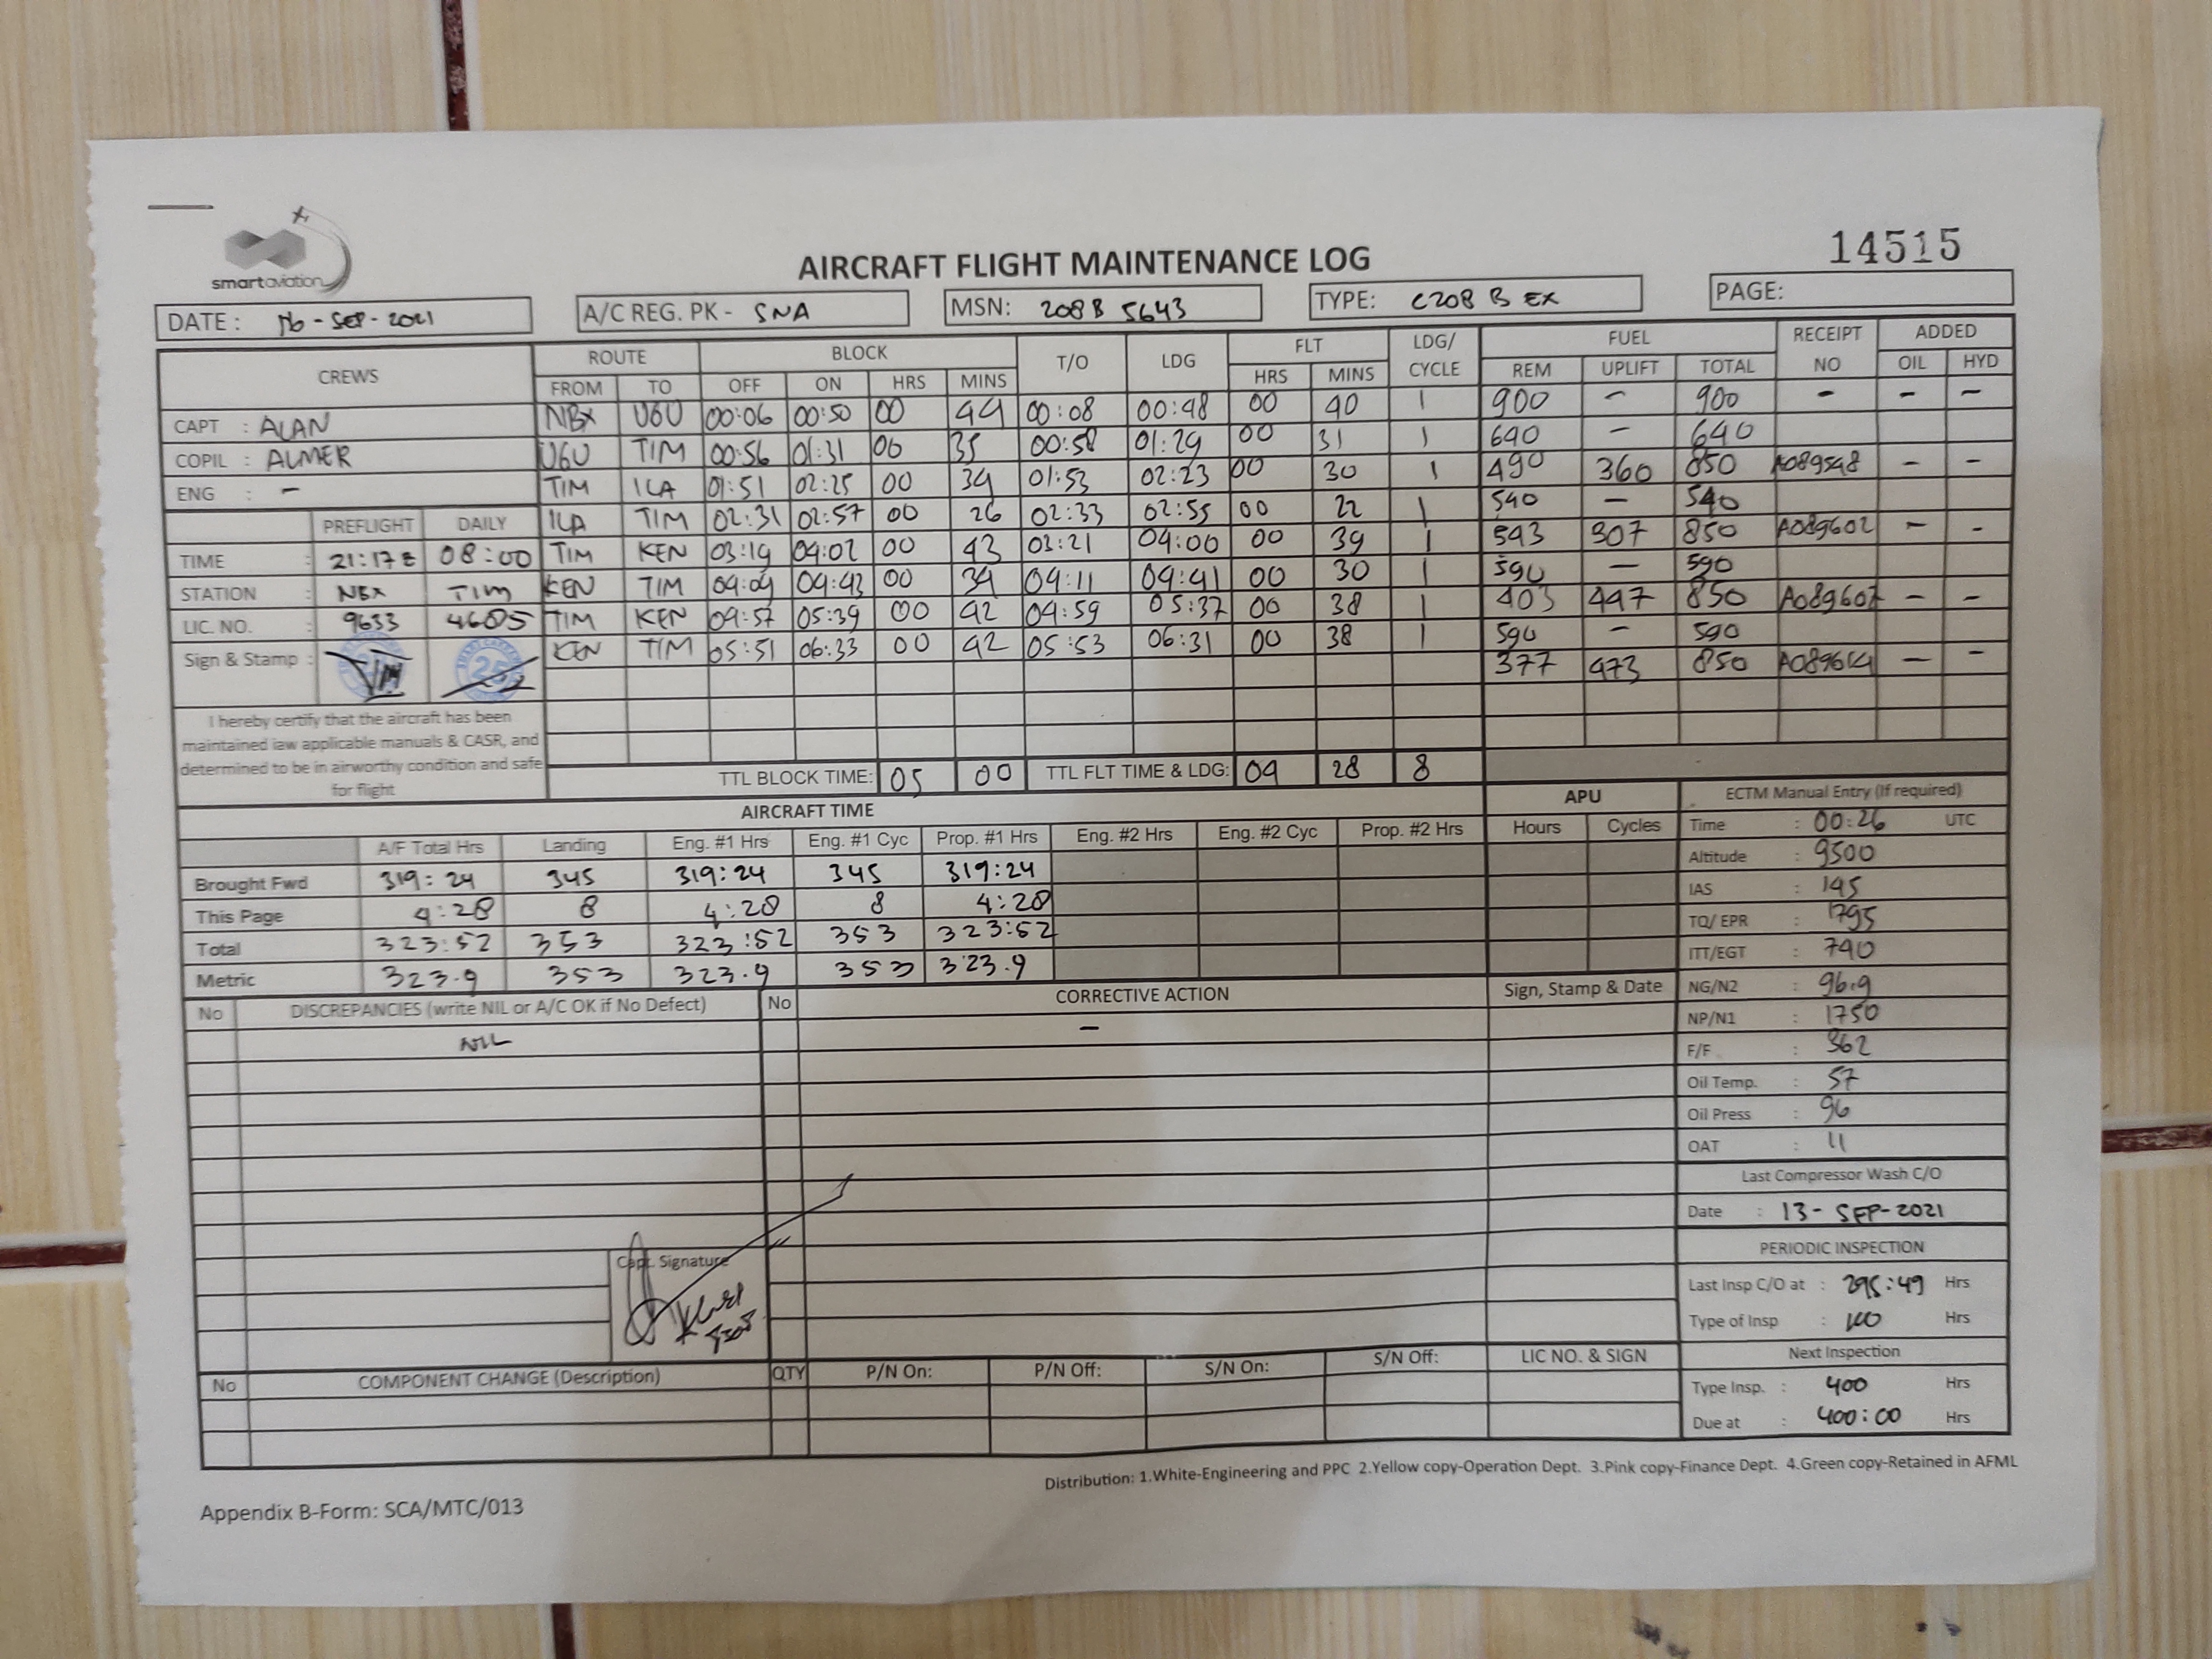 smartaviation
14515
AIRCRAFT FLIGHT MAINTENANCE LOG
DATE : 16-SEP-2021 A/C REG. PK - SNA MSN: 208B 5643 TYPE: C208 B EX PAGE:
CREWS ROUTE BLOCK T/O LDG FLT LDG/ CYCLE FUEL RECEIPT NO ADDED
FROM TO OFF ON HRS MINS HRS MINS REM UPLIFT TOTAL OIL HYD
CAPT : ALAN NBX UGU 00:06 00:50 00 44 00:08 00:48 00 40 1 900 - 900 - - -
COPIL : ALMER UGU TIM 00:56 01:31 00 35 00:58 01:29 00 31 1 640 - 640
ENG : - TIM ILA 01:51 02:25 00 34 01:53 02:23 00 30 1 490 360 850 A089548 - -
PREFLIGHT DAILY ILA TIM 02:31 02:57 00 26 02:33 02:55 00 22 1 540 - 540
TIME : 21:17 Z 08:00 TIM KEN 03:19 04:02 00 43 03:21 04:00 00 39 1 543 307 850 A089602 - -
STATION : NBX TIM KEN TIM 04:09 04:43 00 34 04:11 04:41 00 30 1 590 - 590
LIC. NO. : 9633 4605 TIM KEN 04:57 05:39 00 42 04:59 05:37 00 38 1 403 447 850 A089607 - -
Sign & Stamp : 25 KEN TIM 05:51 06:33 00 42 05:53 06:31 00 38 1 590 - 590
377 473 850 A089614 - -
I hereby certify that the aircraft has been
maintained iaw applicable manuals & CASR, and
determined to be in airworthy condition and safe
for flight
TTL BLOCK TIME: 05 00 TTL FLT TIME & LDG: 04 28 8
AIRCRAFT TIME APU ECTM Manual Entry (If required)
A/F Total Hrs Landing Eng. #1 Hrs Eng. #1 Cyc Prop. #1 Hrs Eng. #2 Hrs Eng. #2 Cyc Prop. #2 Hrs Hours Cycles Time : 00:26 UTC
Altitude : 9500
Brought Fwd 319:24 345 319:24 345 319:24 IAS : 145
This Page 4:28 8 4:28 8 4:28 TQ/ EPR : 1795
Total 323:52 353 323:52 353 323:52 ITT/EGT : 740
Metric 323.9 353 323.9 353 323.9
No DISCREPANCIES (write NIL or A/C OK if No Defect) No CORRECTIVE ACTION Sign, Stamp & Date NG/N2 : 96.9
NIL - NP/N1 : 1750
F/F : 362
Oil Temp. : 57
Oil Press : 96
OAT : 11
Last Compressor Wash C/O
Date : 13-SEP-2021
PERIODIC INSPECTION
Capt. Signature
Last Insp C/O at : 295:49 Hrs
Type of Insp : 100 Hrs
Next Inspection
No COMPONENT CHANGE (Description) QTY P/N On: P/N Off: S/N On: S/N Off: LIC NO. & SIGN
Type Insp. : 400 Hrs
Due at : 400:00 Hrs
Distribution: 1.White-Engineering and PPC 2.Yellow copy-Operation Dept. 3.Pink copy-Finance Dept. 4.Green copy-Retained in AFML
Appendix B-Form: SCA/MTC/013